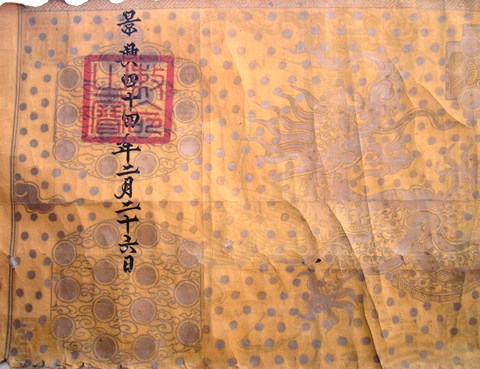 景興四十四年二月二十六日
敕命之寶